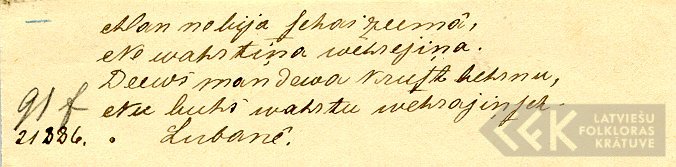 Man nebija schai zeemâ,
No wahrtiņa wehrejiņa.
Deews man dewa krust behrnu,
Nu buhs wahrtu wehrajinsch.
91 f
21336. Lubanê.
LATVIEŠU
FOLKLORAS
KRĀTUVE